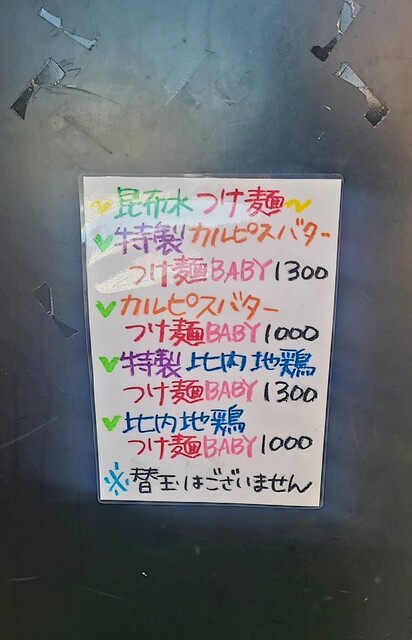 ～昆布水つけ麺～
✓特製カルピスバター
つけ麺BABY1300
✓カルピスバター
つけ麺BABY1000
✓特製比内地鶏
つけ麺BABY1300
✓比内地鶏
つけ麺BABY1000
※替玉はございません